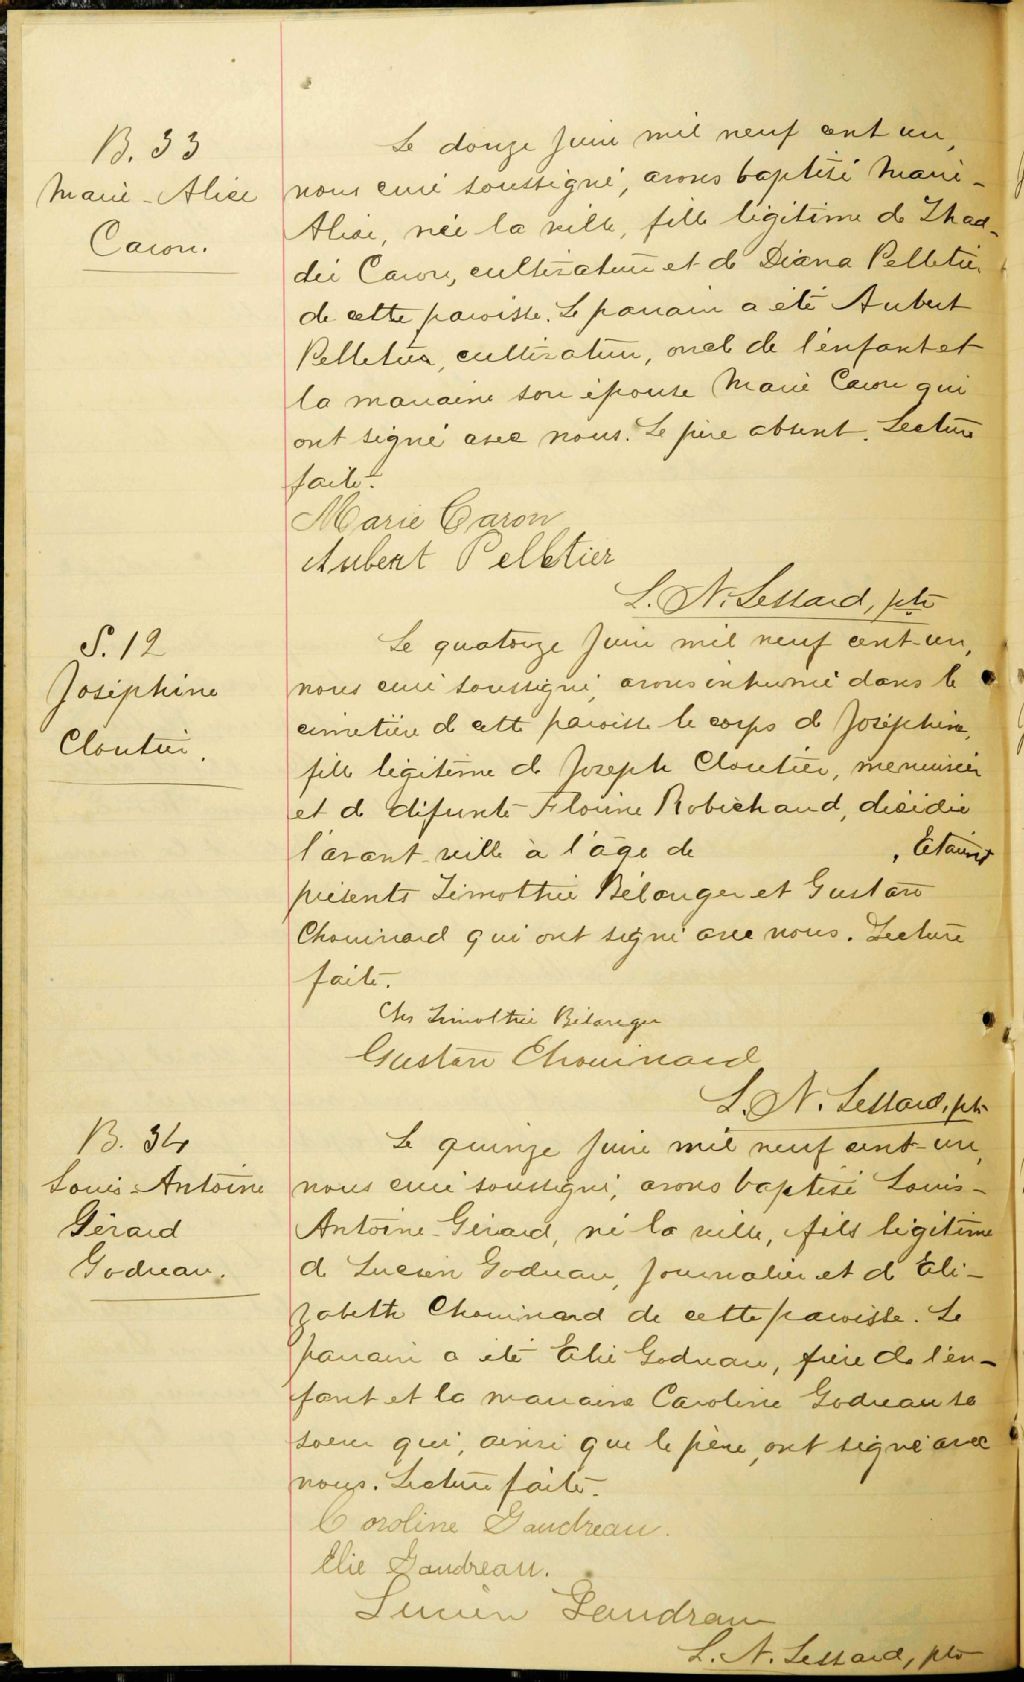 B. 33
Marie-Alice
Caron.
Le douze Juin mil neuf cent un,
nous curé soussigné, avons baptisé Marie-
Alice, née la veille, fille légitime de Thad-
dée Caron, cultivateur et de Diana Pelletier
de cette paroisse. Le parrain a été Aubert
Pelletier, cultivateur, oncle de l'enfant et
la marraine son épouse Marie Caron qui
ont signé avec nous. Le père absent. Lecture
faite.
Marie Caron
Aubert Pelletier
L. N. Lessard, ptr
S. 12
Joséphine
Cloutier.
Le quatorze Juin mil neuf cent-un,
nous curé soussigné, avons inhumé dans le
cimetière de cette paroisse le corps de Joséphine,
fille légitime de Joseph Cloutier, menuisier
et de défunte Florine Robichaud, décédée
l'avant-veille à l'âge de , Etaient
présents Timothée Bélanger et Gustave
Chouinard qui ont signé avec nous. Lecture
faite.
Chs Timothée Bélanger
Gustave Chouinard
L. N. Lessard, ptr
B. 34
Louis-Antoine
Gérard
Godreau.
Le quinze Juin mil neuf cent-un,
nous curé soussigné, avons baptisé Louis-
Antoine-Gérard, né la veille, fils légitime
de Lucien Godreau, Journalier et de Eli-
zabeth Chouinard de cette paroisse. Le
parrain a été Elie Godreau, frère de l'en-
fant et la marraine Caroline Godreau sa
soeur qui, ainsi que le père, ont signé avec
nous. Lecture faite.
Caroline Gaudreau.
Elie Gaudreau.
Lucien Gaudreau
L. N. Lessard, ptr